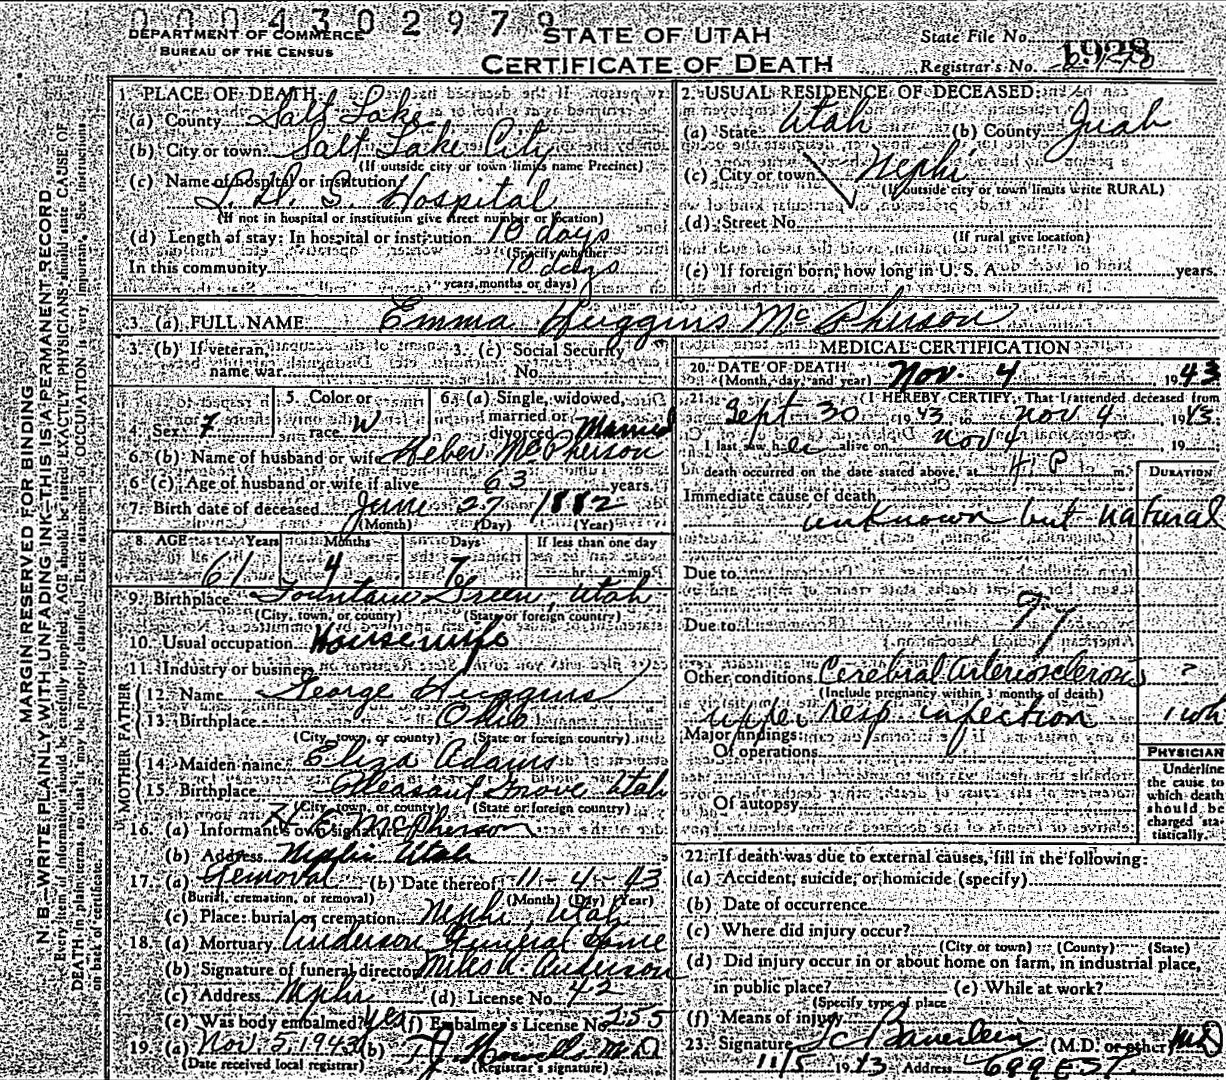 0004302979
DEPARTMENT OF COMMERCE
BUREAU OF THE CENSUS
STATE OF UTAH
CERTIFICATE OF DEATH
State File No.
Registrar's No. 1928
MARGIN RESERVED FOR BINDING
N. B.—WRITE PLAINLY WITH UNFADING INK—THIS IS A PERMANENT RECORD
Every item of information should be carefully supplied; AGE should be stated EXACTLY. PHYSICIANS should state CAUSE OF
DEATH in plain terms, so that it may be properly classified. Exact statement of OCCUPATION is very important. See instructions
on back of certificate.
1. PLACE OF DEATH:
(a) County Salt Lake
(b) City or town Salt Lake City
(If outside city or town limits name Precinct)
(c) Name of hospital or institution
L. D. S. Hospital
(If not in hospital or institution give street number or location)
(d) Length of stay: In hospital or institution 10 days
(Specify whether
In this community 10 days
years, months or days)
2. USUAL RESIDENCE OF DECEASED:
(a) State Utah (b) County Juab
(c) City or town Nephi
(If outside city or town limits write RURAL)
(d) Street No.
(If rural give location)
(e) If foreign born, how long in U. S. A. years.
3. (a) FULL NAME Emma Huggins McPherson
3. (b) If veteran, name war
3. (c) Social Security No.
4. Sex F
5. Color or race W
6. (a) Single, widowed, married or divorced Married
6. (b) Name of husband or wife Heber McPherson
6. (c) Age of husband or wife if alive 63 years.
7. Birth date of deceased June 27 1882
(Month) (Day) (Year)
8. AGE Years Months Days If less than one day
61 4 7 hr. min.
9. Birthplace Fountain Green, Utah
(City, town, or county) (State or foreign country)
10. Usual occupation Housewife
11. Industry or business
FATHER
12. Name George Huggins
13. Birthplace Ohio
(City, town, or county) (State or foreign country)
MOTHER
14. Maiden name Eliza Adams
15. Birthplace Pleasant Grove Utah
(City, town, or county) (State or foreign country)
16. (a) Informant's own signature H E McPherson
(b) Address Nephi Utah
17. (a) Removal (b) Date thereof 11-4-43
(Burial, cremation, or removal) (Month) (Day) (Year)
(c) Place: burial or cremation Nephi, Utah
18. (a) Mortuary Anderson Funeral Home
(b) Signature of funeral director Miles A. Anderson
(c) Address Nephi (d) License No. 42
(e) Was body embalmed? Yes (f) Embalmer's License No. 255
19. (a) Nov 5 1943 (b) M.D.
(Date received local registrar) (Registrar's signature)
MEDICAL CERTIFICATION
20. DATE OF DEATH
(Month, day, and year) Nov. 4, 1943
21. I HEREBY CERTIFY, That I attended deceased from
Sept 30 1943 to Nov 4, 1943;
I last saw her alive on Nov 4, 19
death occurred on the date stated above, at 4: P m.
DURATION
Immediate cause of death
unknown but natural
Due to
Due to
Other conditions Cerebral arteriosclerosis ?
(Include pregnancy within 3 months of death)
upper resp infection 1 wk
Major findings:
Of operations
Of autopsy
PHYSICIAN
Underline
the cause to
which death
should be
charged sta-
tistically.
22. If death was due to external causes, fill in the following:
(a) Accident, suicide, or homicide (specify)
(b) Date of occurrence
(c) Where did injury occur?
(City or town) (County) (State)
(d) Did injury occur in or about home on farm, in industrial place,
in public place? (e) While at work?
(Specify type of place
(f) Means of injury
23. Signature (M.D. or other) M.D.
11/5 1943 Address